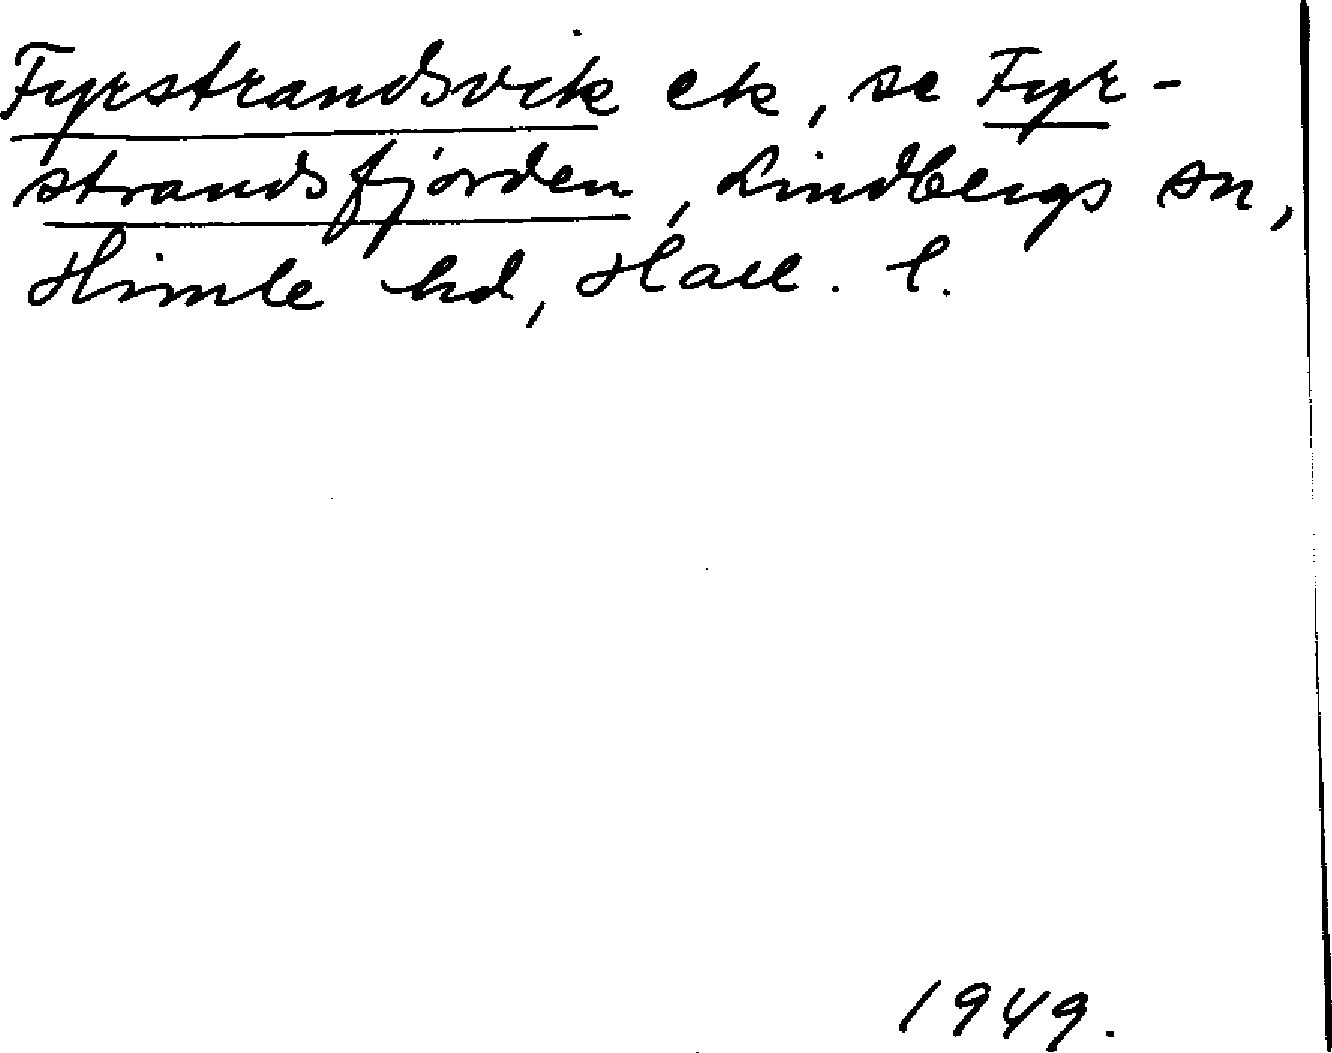 Fyrstrandsvik ek, se Fyr-
strandsfjorden, Lindbergs sn,
Himle hd, Hall. l.
1949.